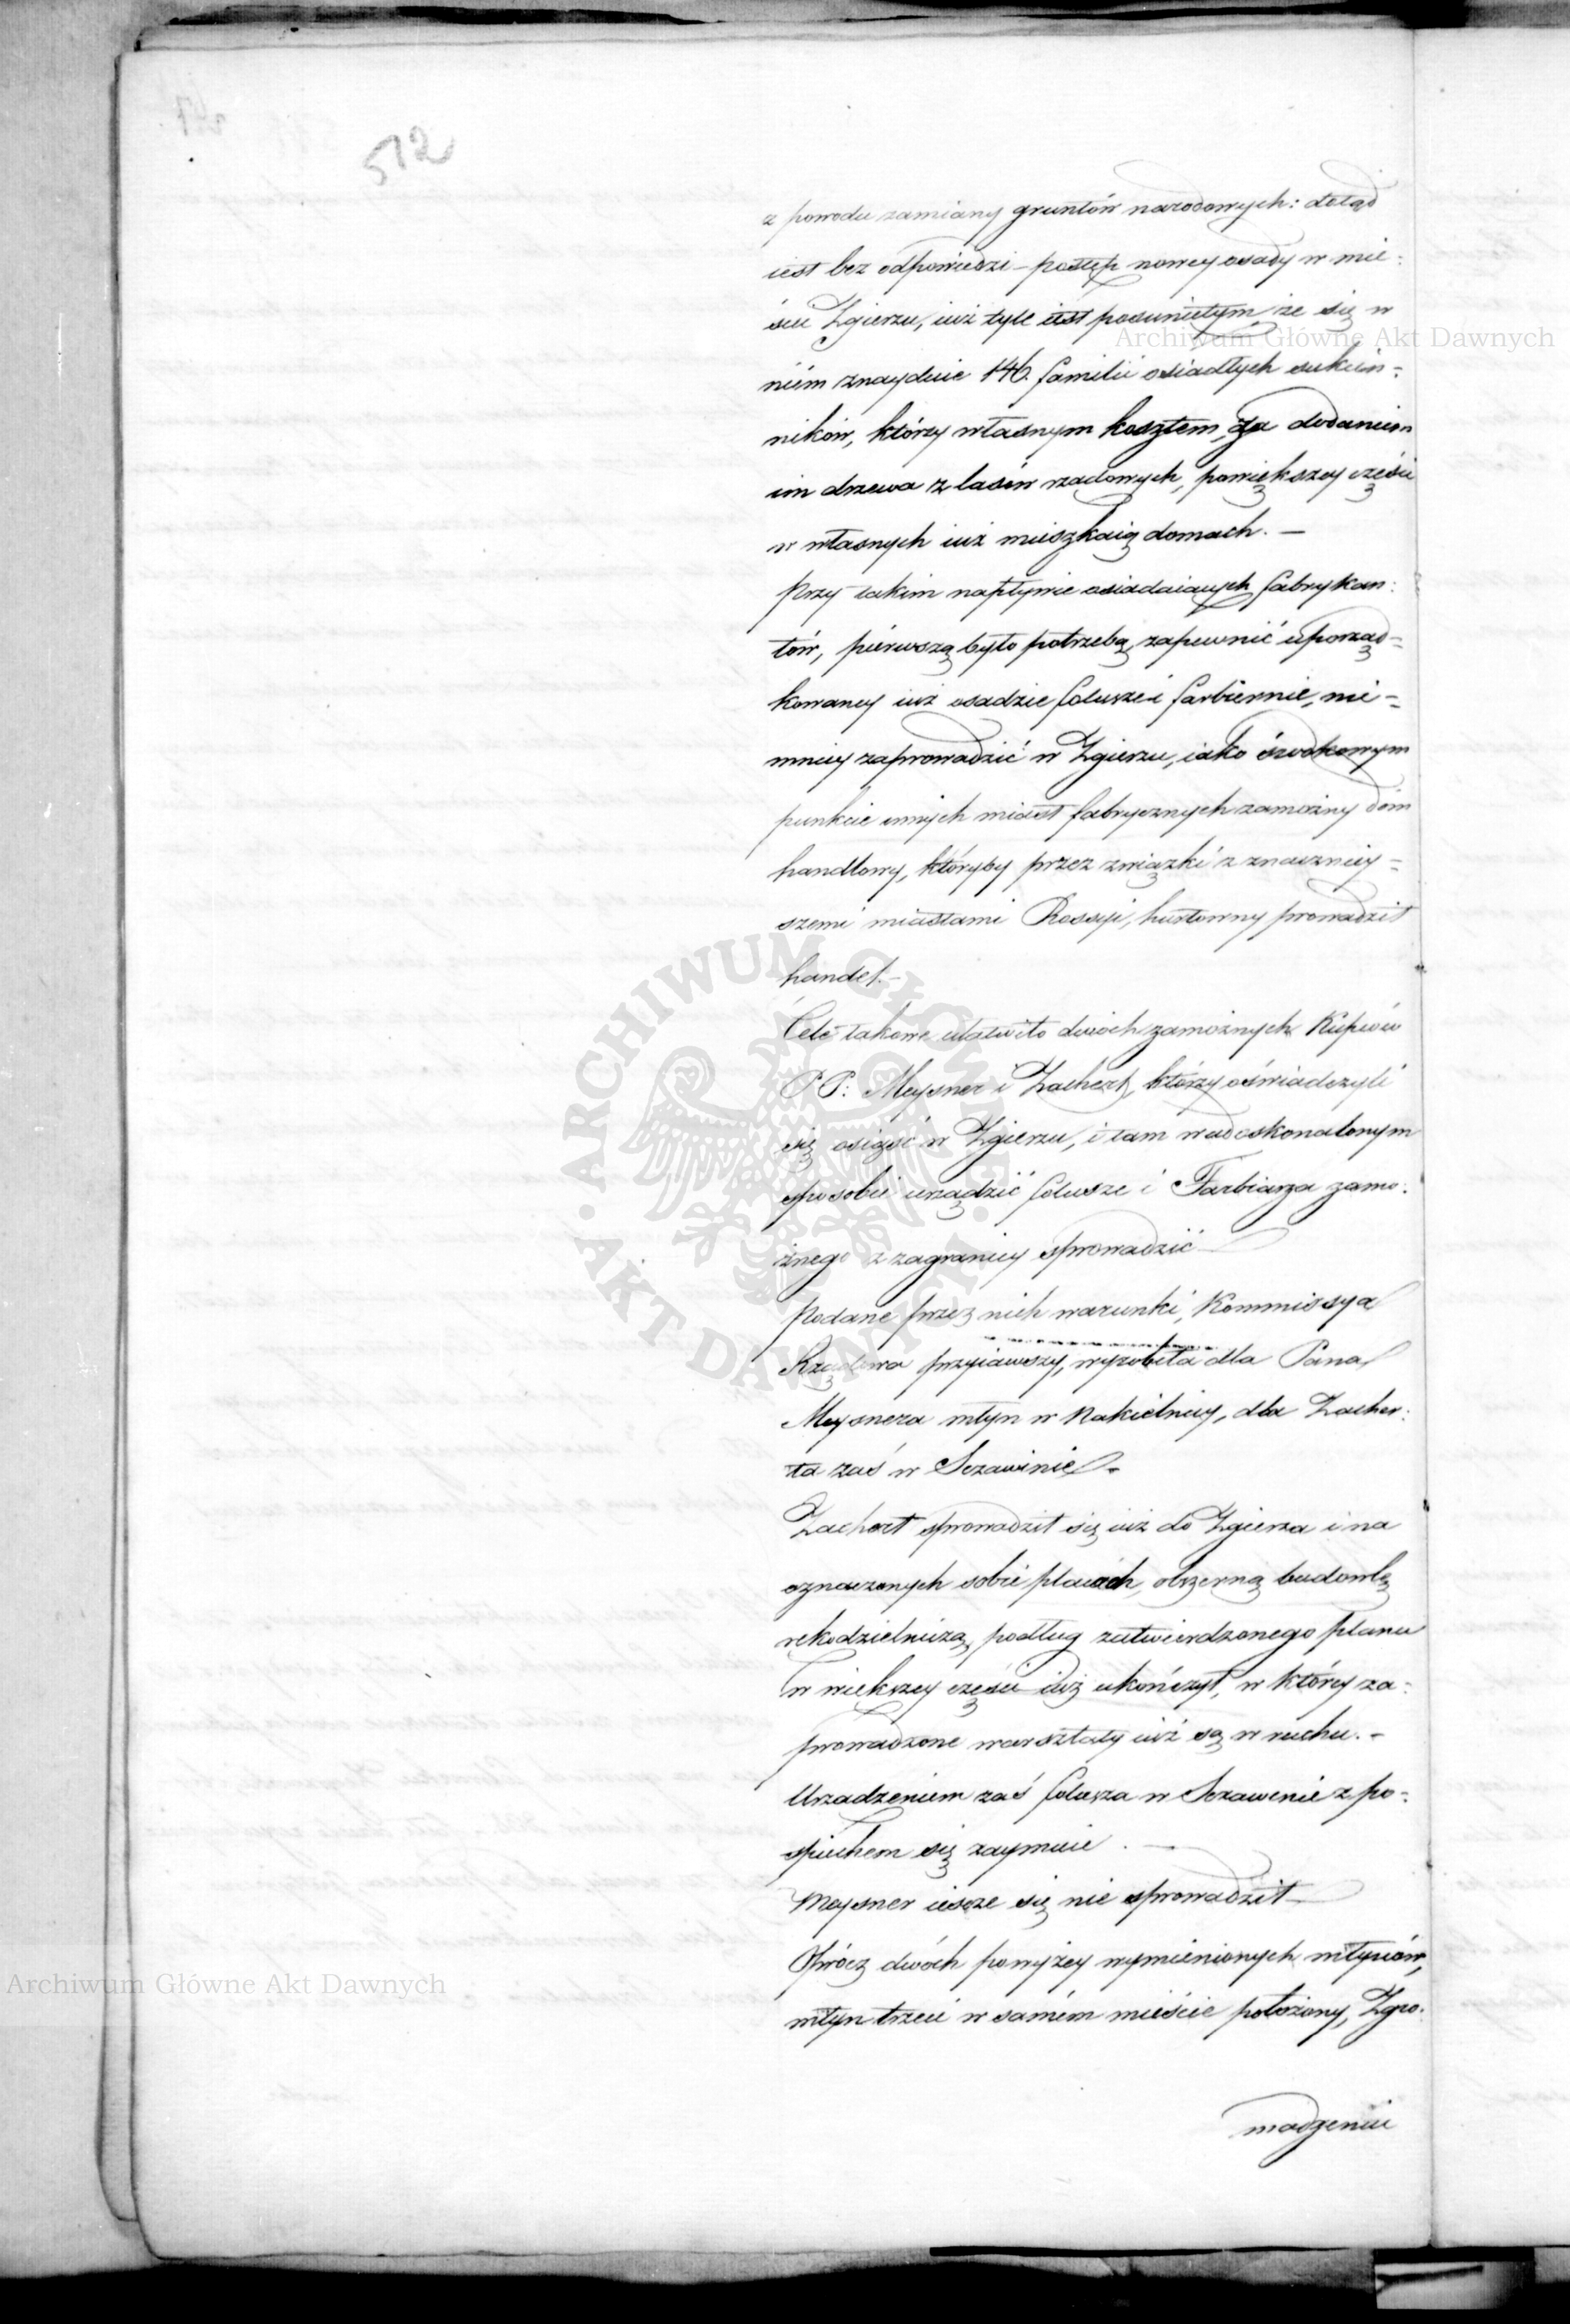 512
z powodu zamiany gruntów narodowych: dotąd
iest bez odpowiedzi – postęp nowey osady w mie:
ście Zgierzu, iuż tyle iest posuniętym że się w
niém znayduie 146. familii osiadłych sukien=
ników, którzy własnym kosztem, za dodaniem
im drzewa z lasów rządowych, powiększey części
w własnych iuż mieszkaią domach. –
Przy takim napływie osiadaiących fabrykan:
tów, piérwszą było potrzebą, zapewnić uporząd=
kowaney iuż osadzie folusze i farbiernie, nie=
mniey zaprowadzić w Zgierzu, iako środkowym
punkcie innych miast fabrycznych zamożny dóm
handlowy, któryby przez związki z znaczniey=
szemi miastami Rossyi, hurtowny prowadził
handel. –
Cele takowe ułatwiło dwóch zamożnych Kupców
P.P: Meysner i Zachert, którzy oświadczyli
się osiąść w Zgierzu, i tam w udoskonalonym
sposobie urządzić folusze i Farbiarza zamo:
żnego z zagranicy sprowadzić
Podane przez nich warunki, Kommissya
Rządowa przyiąwszy, wyrobiła dla Pana
Meysnera młyn w Nakielnicy, dla Zacher:
ta zaś w Sczawinie.
Zachert sprowadził się iuż do Zgierza i na
oznaczonych sobie placach, obszerną budowlę
rękodzielniczą, podług zatwierdzonego planu
w większey części iuż ukończył, w którey za:
prowadzone warsztaty iuż są w ruchu. –
Urządzeniem zaś folusza w Sczawinie z po=
spiechem się zaymuie. –
Meysner iescze się nie sprowadził
Oprócz dwóch powyżey wymienionych młynów,
młyn trzeci w samém mieście położony, Zgro:
madzeniu
Archiwum Główne Akt Dawnych
ARCHIWUM GŁÓWNE · AKT DAWNYCH ·
Archiwum Główne Akt Dawnych